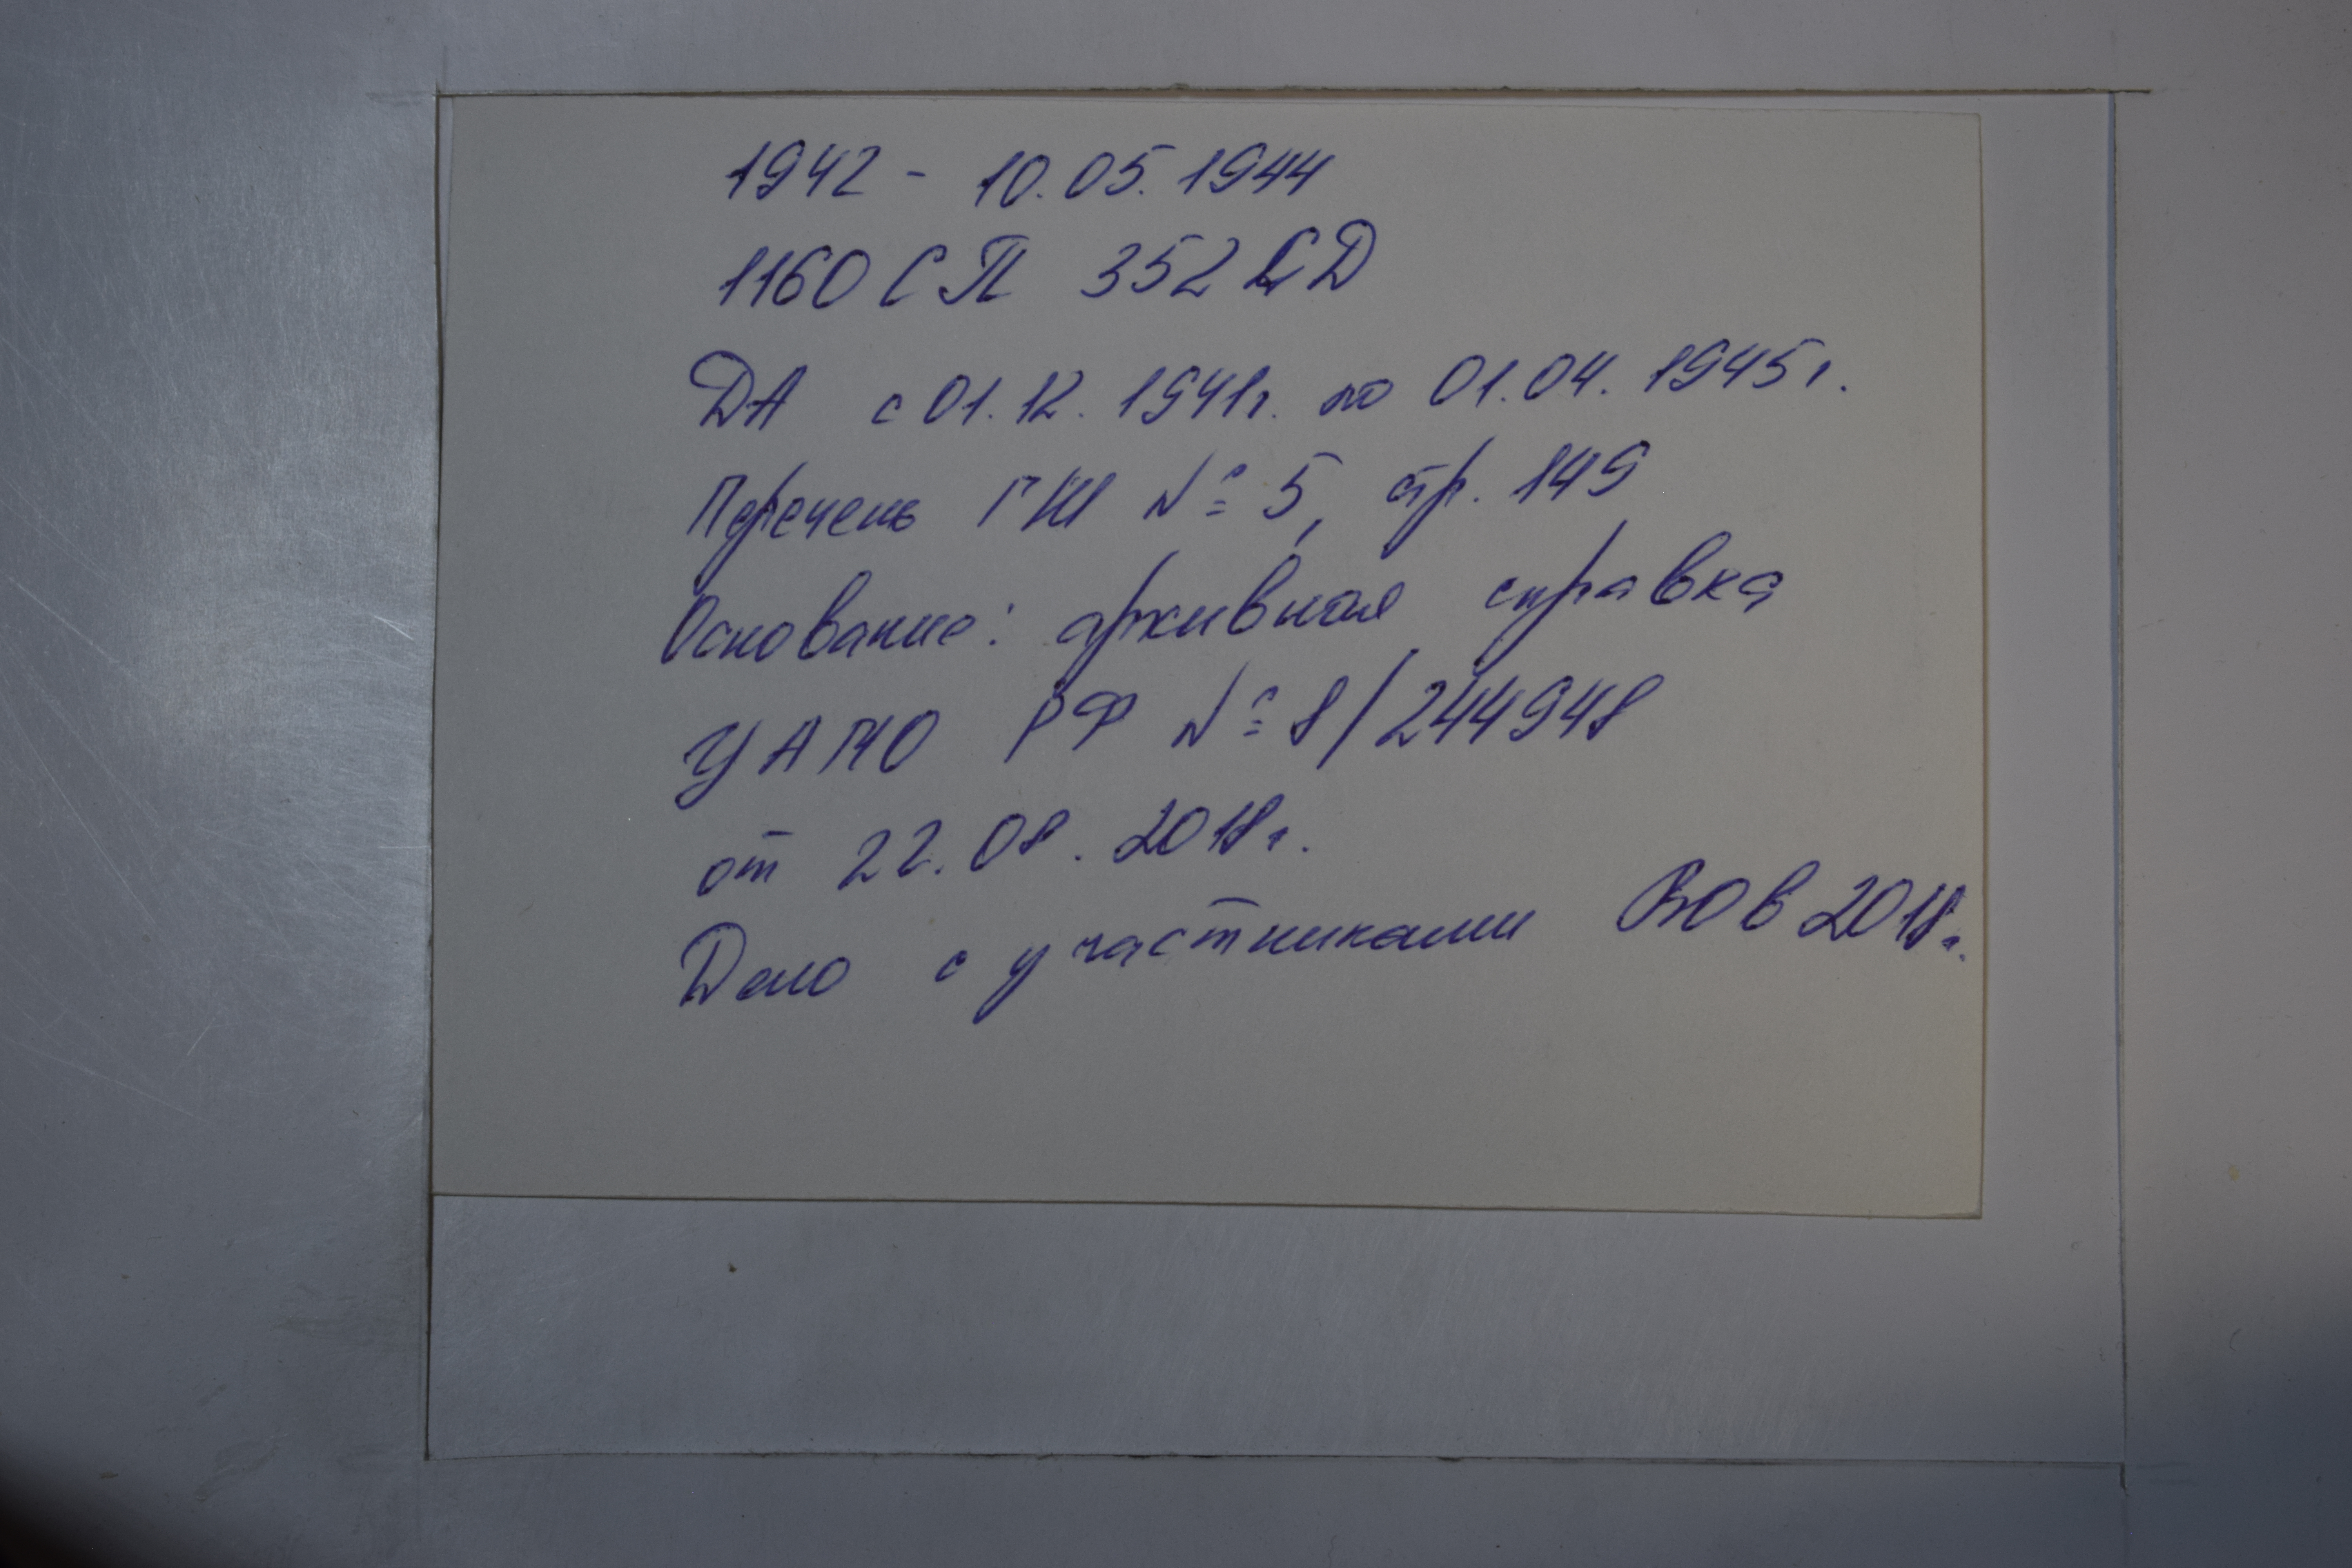 1942 - 10.05.1944
1160 СП 352 СД
ДА с 01.12.1941г. по 01.04.1945г.
Перечень ГШ № 5, стр. 149
Основание: архивная справка
ЦАМО РФ № 8/244948
от 22.08.2018г.
Дело с участниками ВОВ 2018г.